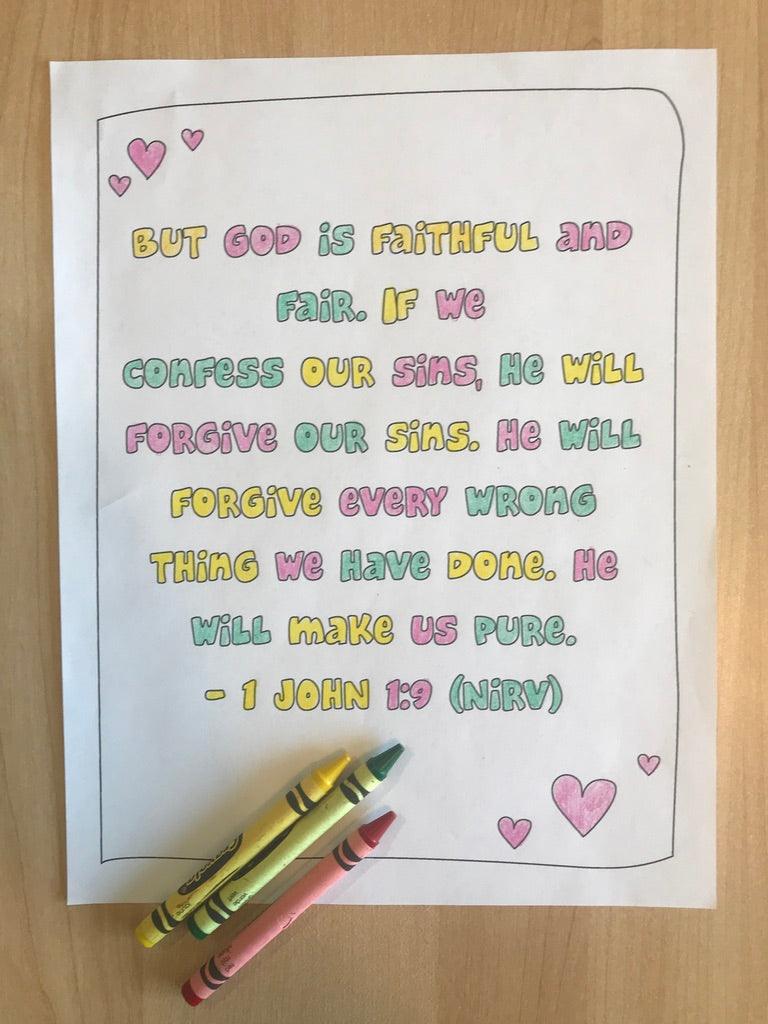 BUT GOD is FaiTHFUL and
Fair. IF we
confess our sins, He will
Forgive our sins. He will
Forgive every wrong
THing we Have Done. He
will make us pure.
- 1 JOHN 1:9 (NiRV)